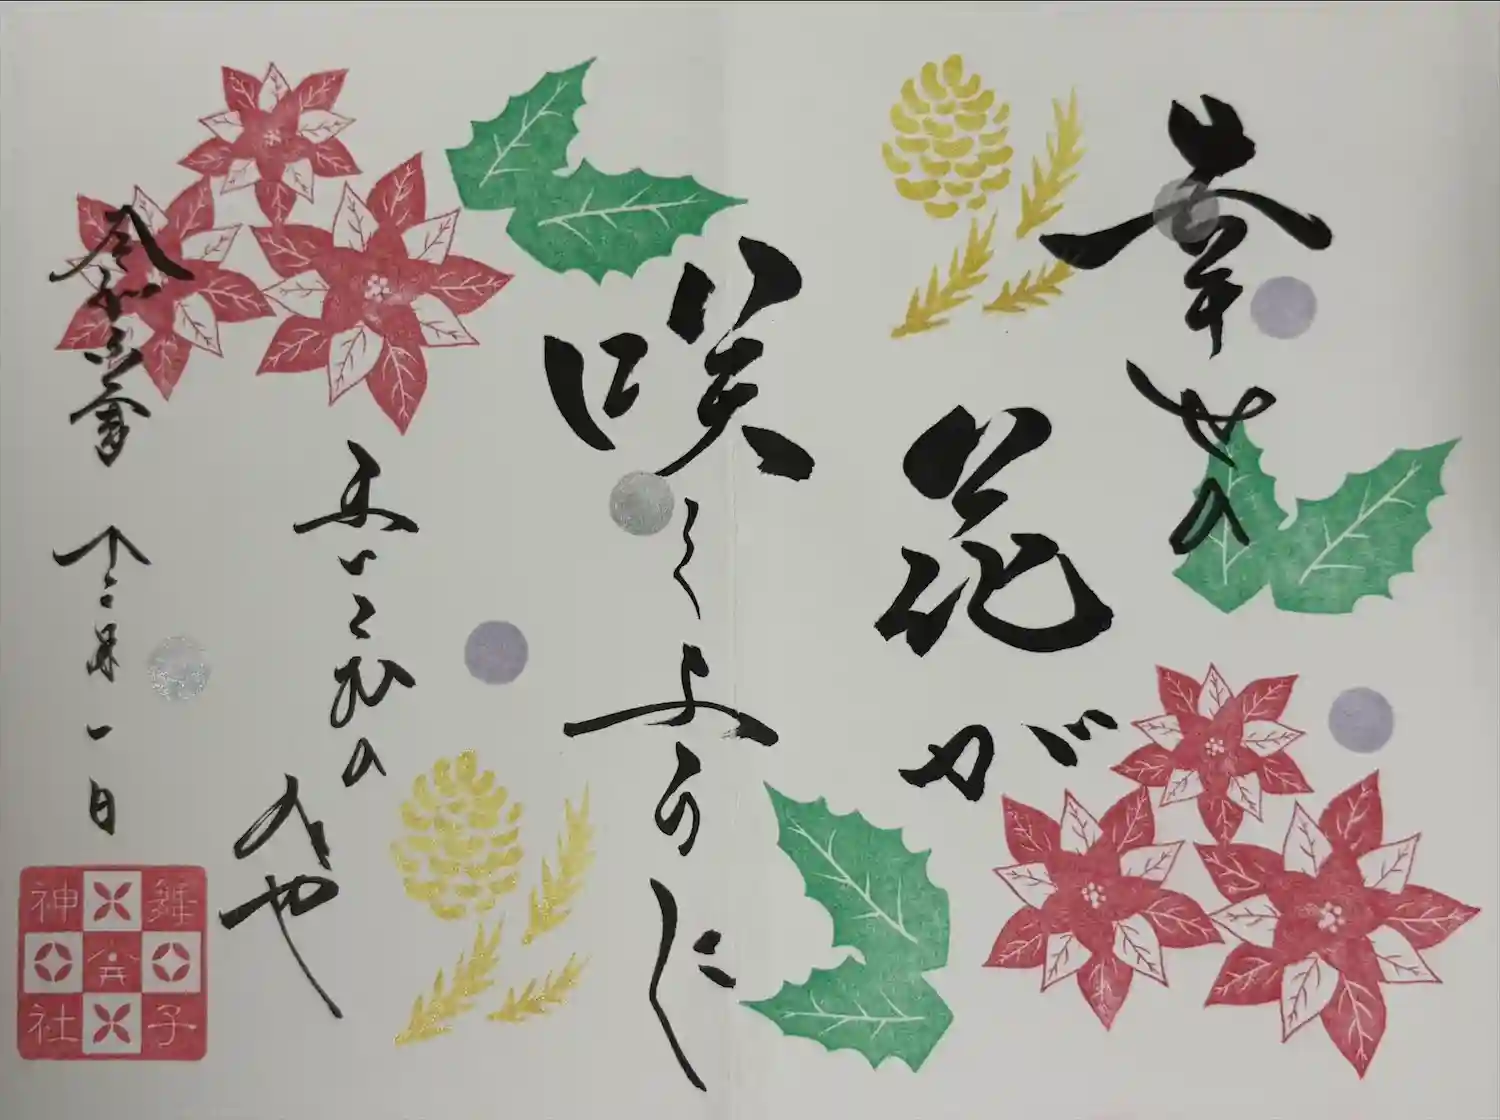 幸せの
花が
咲くように
まいこむの
みや
令和六年 十二月一日
舞子
六
神社